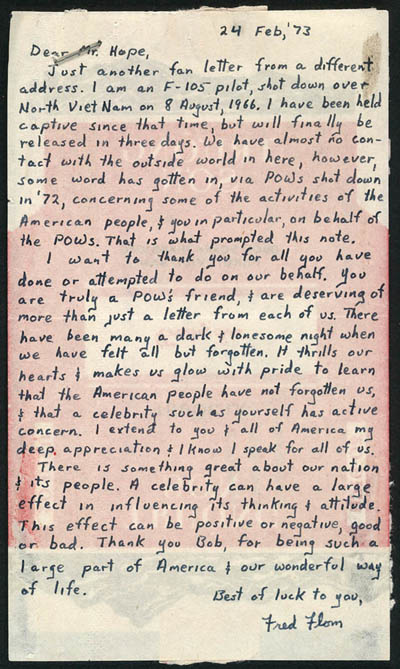 24 Feb,'73
Dear Mr. Hope,
Just another fan letter from a different
address. I am an F-105 pilot, shot down over
North Viet Nam on 8 August, 1966. I have been held
captive since that time, but will finally be
released in three days. We have almost no con-
tact with the outside world in here, however,
some word has gotten in, via POWs shot down
in '72, concerning some of the activities of the
American people, & you in particular, on behalf of
the POWs. That is what prompted this note.
I want to thank you for all you have
done or attempted to do on our behalf. You
are truly a POW's friend, & are deserving of
more than just a letter from each of us. There
have been many a dark & lonesome night when
we have felt all but forgotten. It thrills our
hearts & makes us glow with pride to learn
that the American people have not forgotten us,
& that a celebrity such as yourself has active
concern. I extend to you & all of America my
deep appreciation & I know I speak for all of us.
There is something great about our nation
& its people. A celebrity can have a large
effect in influencing its thinking & attitude.
This effect can be positive or negative, good
or bad. Thank you Bob, for being such a
large part of America & our wonderful way
of life.
Best of luck to you,
Fred Flom